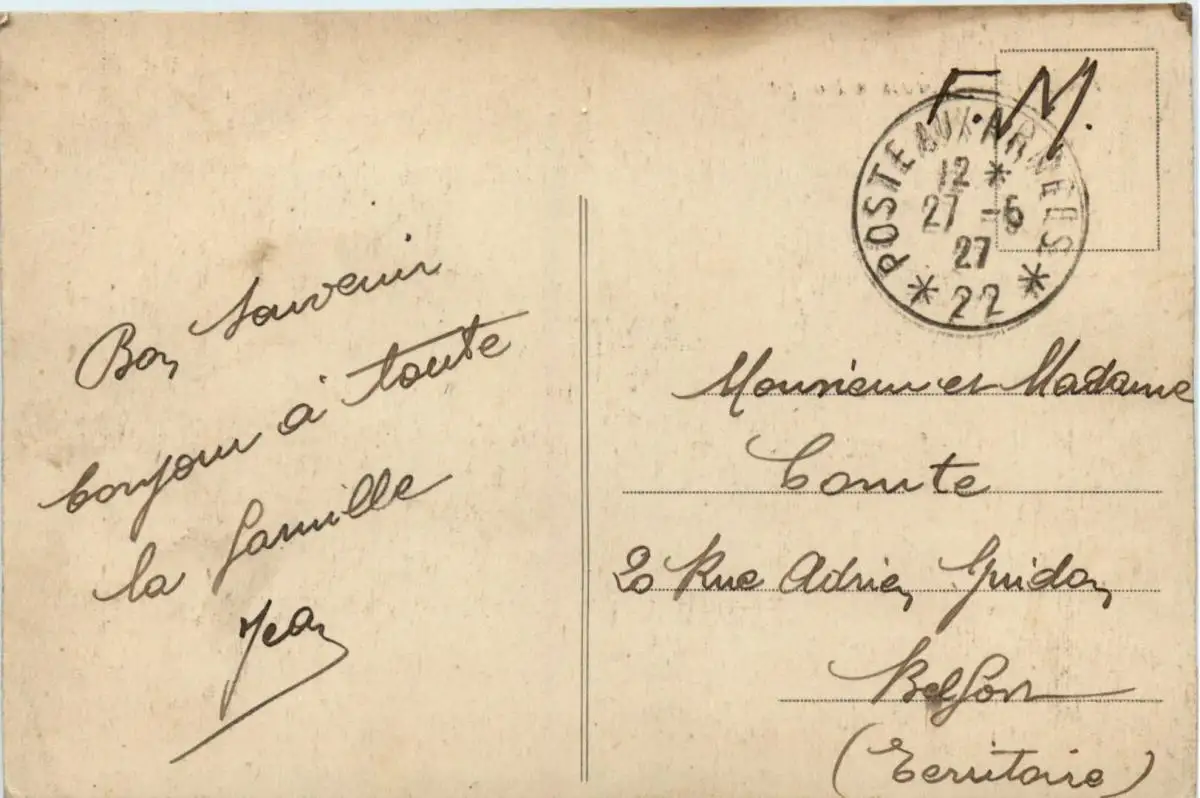 Bon souvenir
bonjour à toute
la famille
Jean
F.M.
POSTE AUX ARMEES
12 *
27 -5
27
* 22 *
Monsieur et Madame
Comte
20 Rue Adrien Guidon
Belfort
(Territoire)